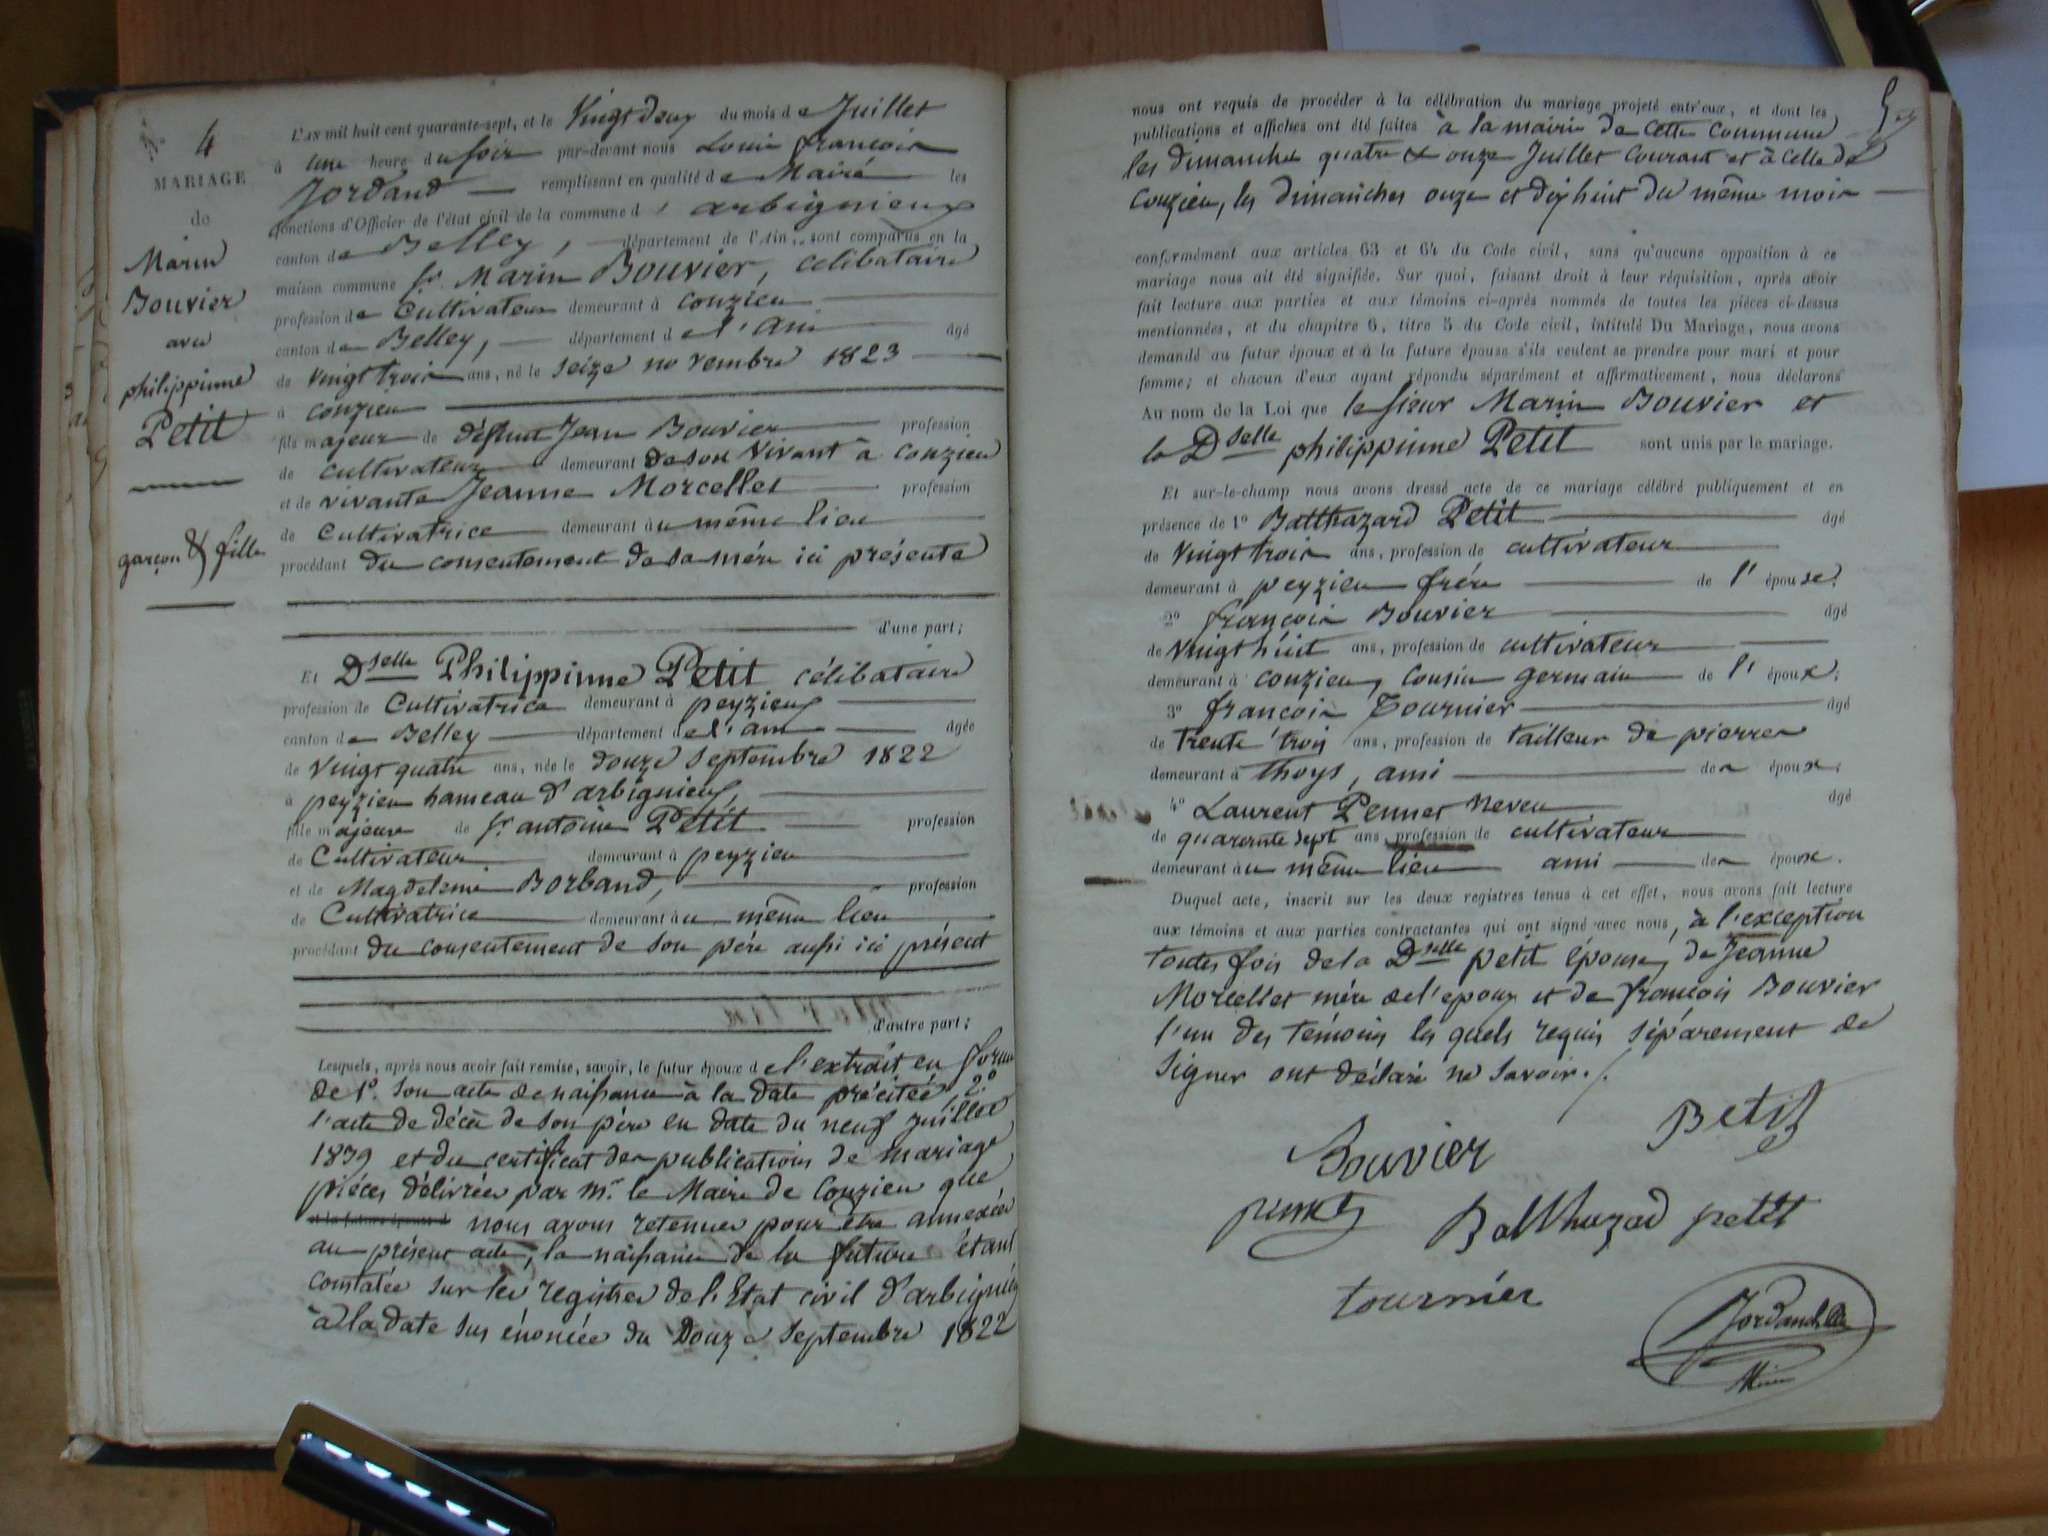 N° 4
MARIAGE
de
Marin
Bouvier
avec
philippinne
Petit
garçon & fille
L'AN mil huit cent quarante-sept, et le Vingt deux du mois de Juillet
à une heure du soir par-devant nous Louis françois
Jordand remplissant en qualité de Maire les
fonctions d'Officier de l'état civil de la commune d' arbignieux
canton de Belley, département de l'Ain, sont comparus en la
maison commune Sr Marin Bouvier, célibataire
profession de Cultivateur demeurant à Conzieu
canton de Belley, département de l'ain âgé
de vingt trois ans, né le seize novembre 1823
à Conzieu
fils majeur de défunt Jean Bouvier profession
de cultivateur demeurant de son vivant à Conzieu
et de vivante Jeanne Morcellet profession
de Cultivatrice demeurant au même lieu
procédant du consentement de sa mère ici présente
d'une part;
Et Dselle Philippinne Petit célibataire
profession de Cultivatrice demeurant à peyzieu
canton de Belley département de l'ain âgée
de vingt quatre ans, née le douze Septembre 1822
à peyzieu hameau d'arbignieux,
fille majeure de Sr antoine Petit profession
de Cultivateur demeurant à peyzieu
et de Magdeleine Borband, profession
de Cultivatrice demeurant au même lieu
procédant du consentement de son père aussi ici présent
d'autre part;
Lesquels, après nous avoir fait remise, savoir, le futur époux de l'extrait en forme
de 1° son acte de naissance à la date précitée, 2°
l'acte de décès de son père en date du neuf juillet
1839 et du certificat de publications de mariage
pièces délivrées par mr le Maire de Conzieu que
et la future épouse d nous avons retenues pour être annexées
au présent acte, la naissance de la future étant
constatée sur les registres de l'Etat civil d'arbignieu
à la date sus énoncée du Douze Septembre 1822
nous ont requis de procéder à la célébration du mariage projeté entr'eux, et dont les
publications et affiches ont été faites à la mairie de cette commune
les dimanches quatre & onze Juillet courant et à celle de
Conzieu, les dimanches onze et dix huit du même mois
conformément aux articles 63 et 64 du Code civil, sans qu'aucune opposition à ce
mariage nous ait été signifiée. Sur quoi, faisant droit à leur réquisition, après avoir
fait lecture aux parties et aux témoins ci-après nommés de toutes les pièces ci-dessus
mentionnées, et du chapitre 6, titre 5 du Code civil, intitulé Du Mariage, nous avons
demandé au futur époux et à la future épouse s'ils veulent se prendre pour mari et pour
femme; et chacun d'eux ayant répondu séparément et affirmativement, nous déclarons
Au nom de la Loi que le sieur Marin Bouvier et
la Dselle philippinne Petit sont unis par le mariage.
Et sur-le-champ nous avons dressé acte de ce mariage célébré publiquement et en
présence de 1° Balthazard Petit âgé
de vingt trois ans, profession de cultivateur
demeurant à peyzieu frère de l'épouse.
2° françois Bouvier âgé
de vingt huit ans, profession de cultivateur
demeurant à Conzieu, Cousin germain de l'époux.
3° françois Tournier âgé
de trente trois ans, profession de tailleur de pierres
demeurant à Thoys, ami des époux.
4° Laurent Pennet neveu âgé
de quarente sept ans profession de cultivateur
demeurant au même lieu ami des époux.
Duquel acte, inscrit sur les deux registres tenus à cet effet, nous avons fait lecture
aux témoins et aux parties contractantes qui ont signé avec nous, à l'exception
toutes fois de la Dselle petit épouse, de Jeanne
Morcellet mère de l'époux et de françois Bouvier
l'un des témoins les quels requis séparement de
signer ont déclaré ne savoir./.
Bouvier
Petit
pennet
Balthazad petit
tournier
Jordand
Maire